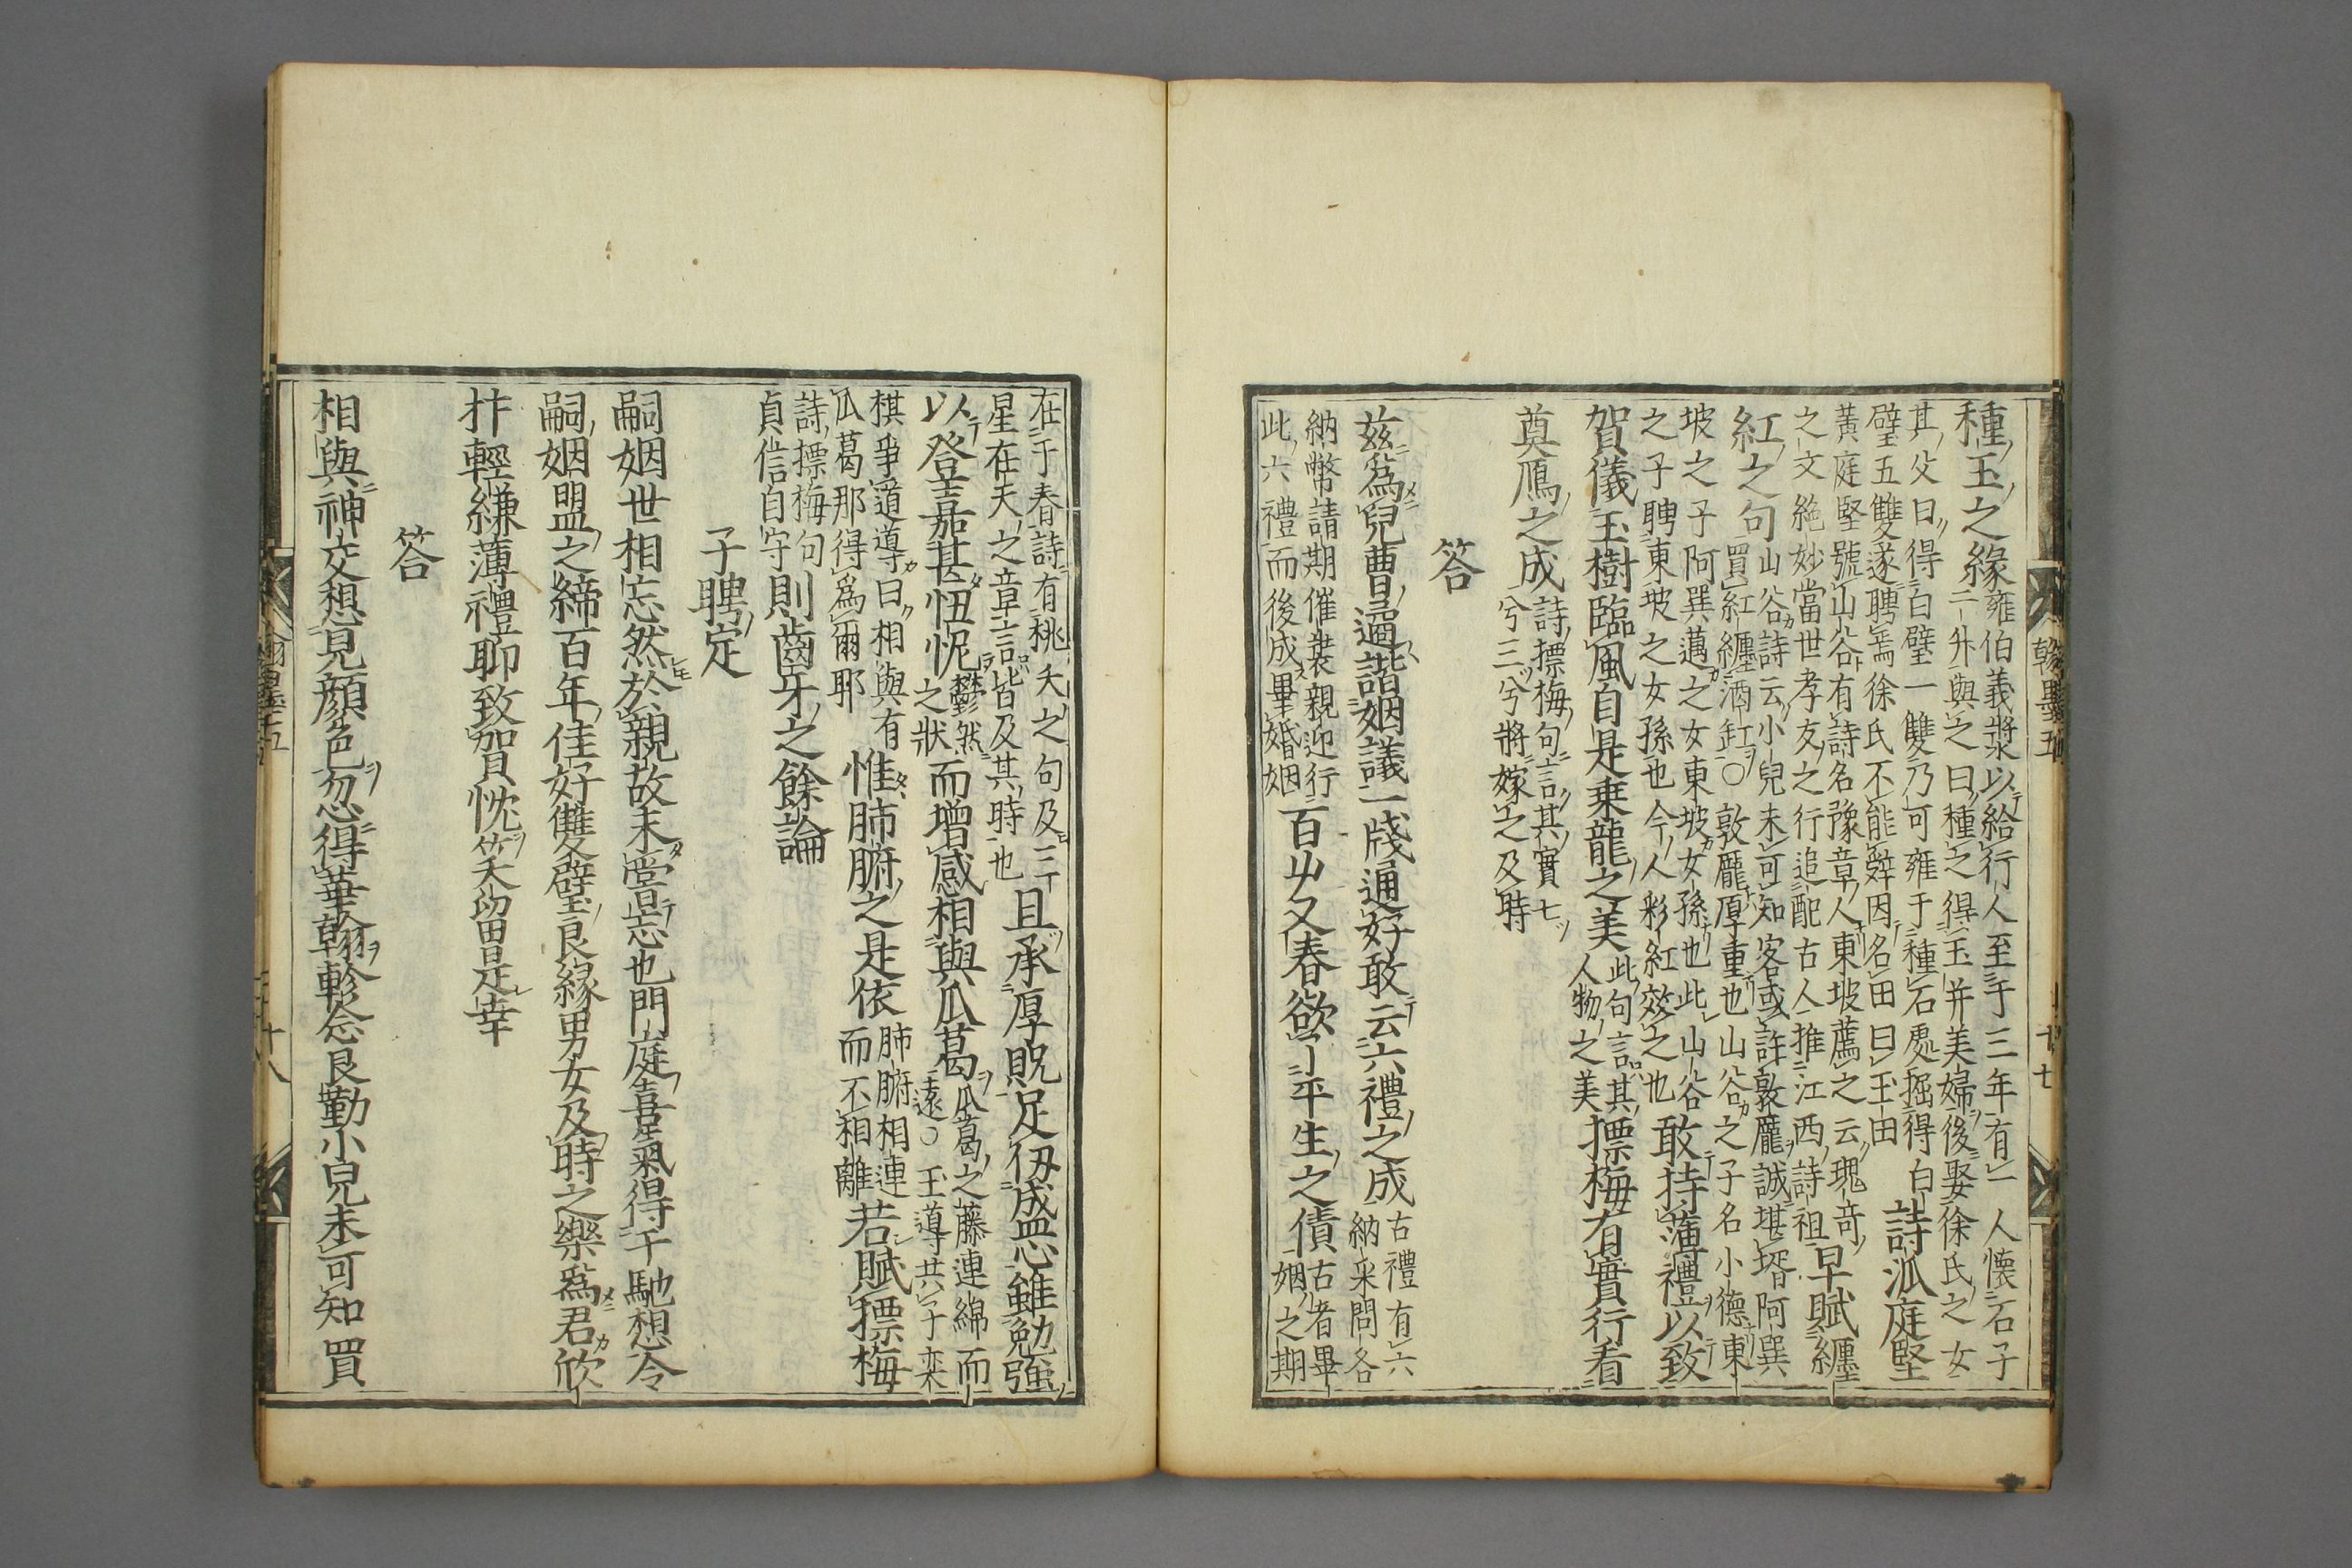 種玉之緣雍伯義漿以給行人至于三年有一人懷石子
二升與之曰種之得玉并美婦後娶徐氏之女
其父曰得白璧一雙乃可雍于種石處掘得白
璧五雙遂聘焉徐氏不能辞因名田曰玉田
詩派庭堅
黄庭堅號山谷有詩名豫章人東坡薦之云瑰奇
之文絶妙當世孝友之行追配古人推江西詩祖
早賦纏
紅之句山谷詩云小兒未可知客或許敦厖誠堪壻阿巽
買紅纏酒缸○敦厖厚重也山谷之子名小德東
坡之子阿巽邁之女東坡女孫也此山谷
之子聘東坡之女孫也今人彩紅效之也
敢持薄禮以致
賀儀玉樹臨風自是乗龍之美此句言其
人物之美
摽梅有實行看
奠鴈之成詩摽梅句言其實七
兮三兮將嫁之及時
答
兹爲兒曹過諧姻議一牋通好敢云六禮之成古禮有六
納采問名
納幣請期催裝親迎行
此六禮而後成畢婚姻
百岁又春欲了平生之債古者畢
姻之期
翰墨五
十七
在于春詩有桃夭之句及三
星在天之章言皆及其時也
且承厚貺足仭盛心雖勉強
以登嘉甚忸怩鬱然
之狀
而增感相與瓜葛瓜葛之藤連綿而
遠○王導共子奕
棋爭道導曰相與有
瓜葛那得爲爾耶
惟肺腑之是依肺腑相連
而不相離
若賦摽梅
詩摽梅句
貞信自守
則齒牙之餘論
子聘定
嗣姻世相忘然於親故未嘗忘也門庭喜氣得于馳想令
嗣姻盟之締百年佳好雙璧良緣男女及時之樂爲君欣
抃輕縑薄禮聊致賀忱笑留是幸
答
相與神交想見顔色忽得華翰軫念良勤小兒未可知買
翰墨五
十八